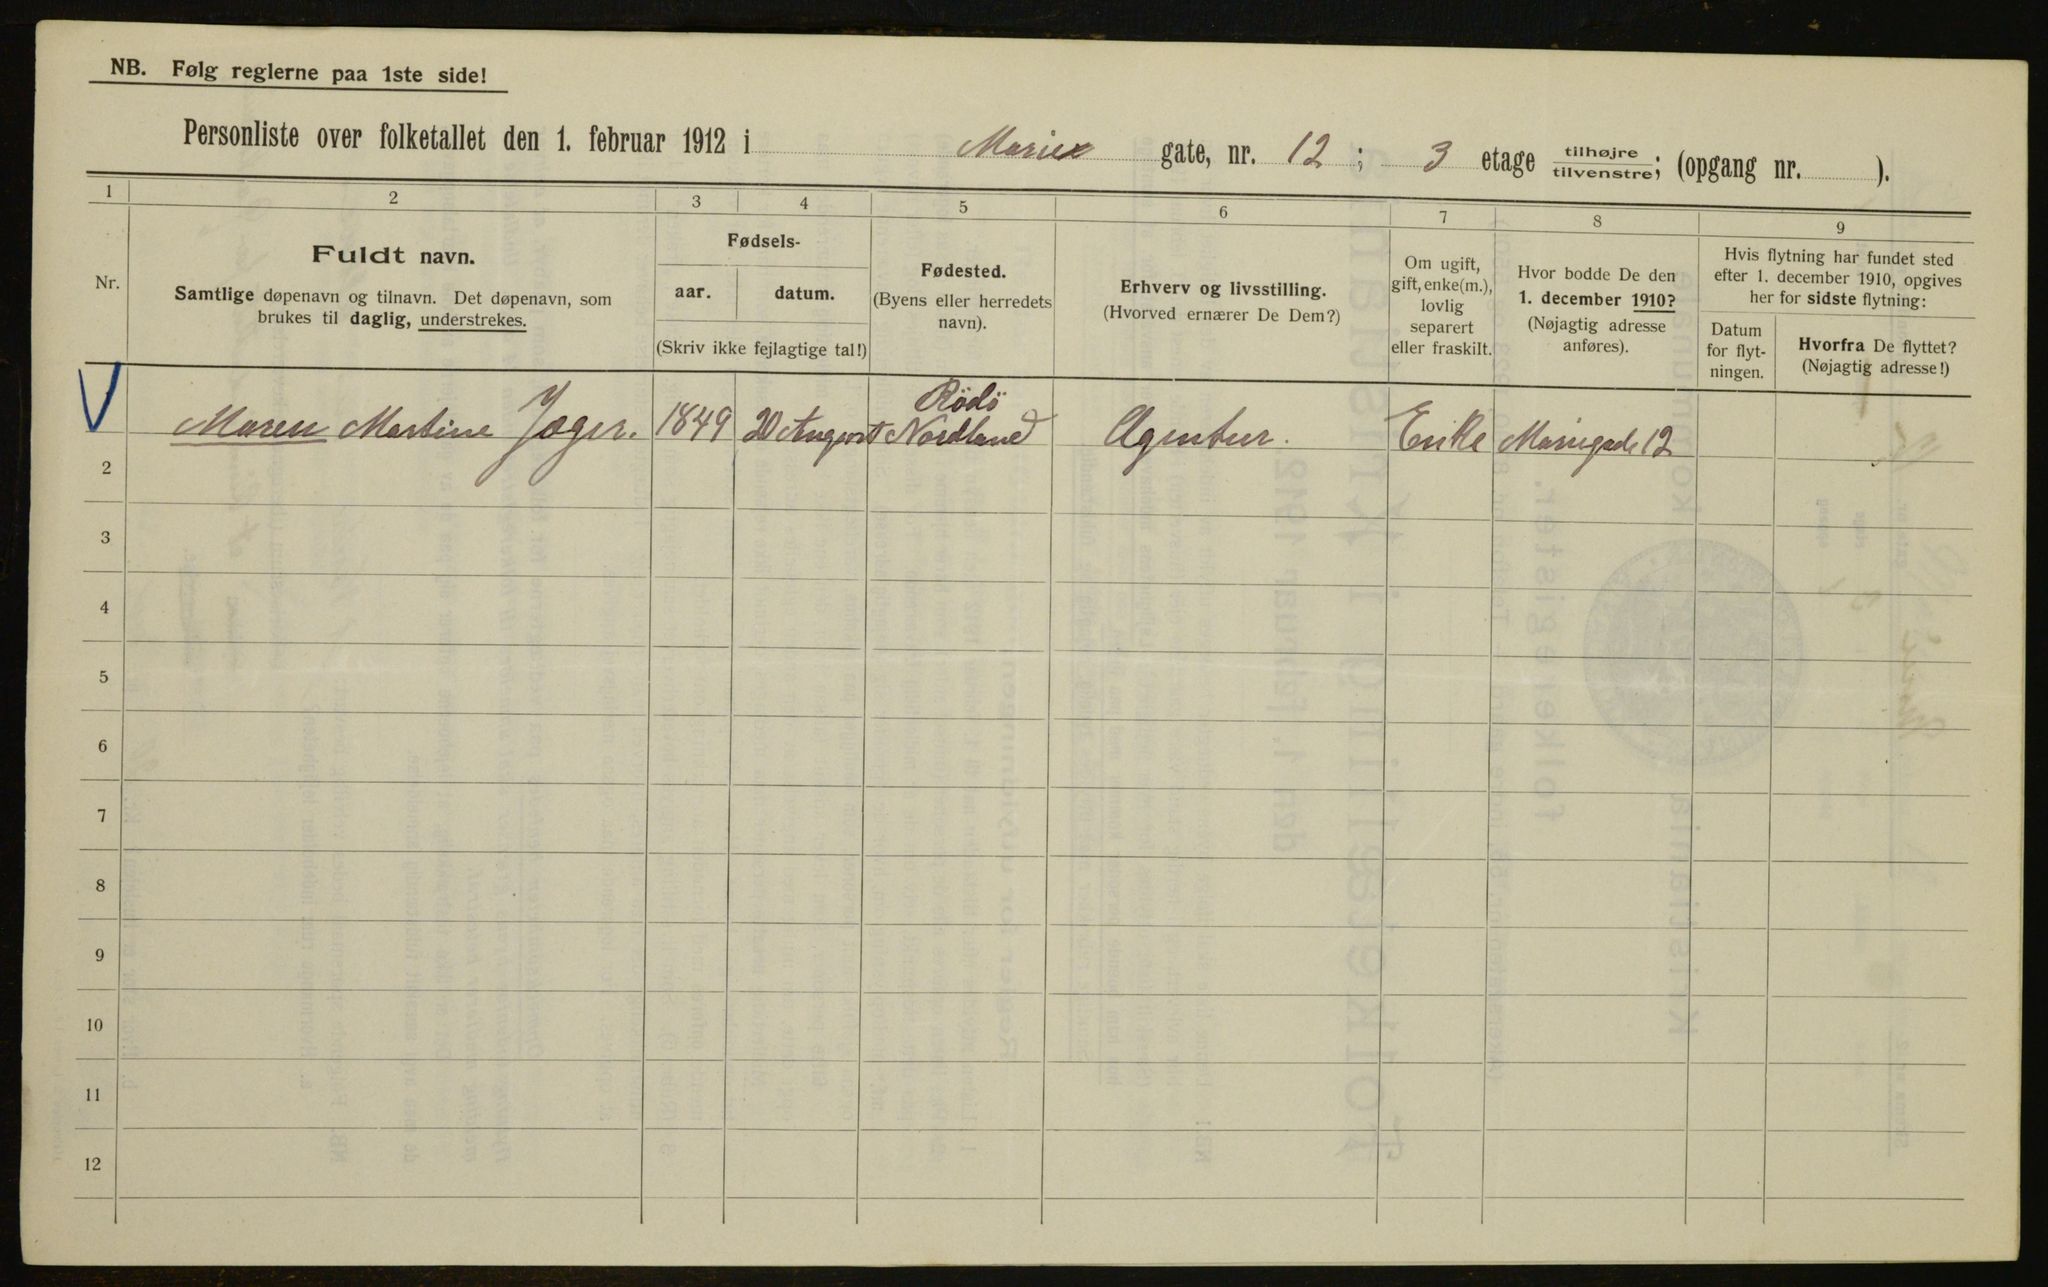 NB. Følg reglerne paa 1ste side!
Personliste over folketallet den 1. februar 1912 i Marie gate, nr. 12; 3 etage tilhøjre tilvenstre; (opgang nr. ).
1 2 3 4 5 6 7 8 9
Nr.
Fuldt navn.
Samtlige døpenavn og tilnavn. Det døpenavn, som
brukes til daglig, understrekes.
Fødsels-
aar. datum.
(Skriv ikke fejlagtige tal!)
Fødested.
(Byens eller herredets
navn).
Erhverv og livsstilling.
(Hvorved ernærer De Dem?)
Om ugift,
gift, enke(m.),
lovlig
separert
eller fraskilt.
Hvor bodde De den
1. december 1910?
(Nøjagtig adresse
anføres).
Hvis flytning har fundet sted
efter 1. december 1910, opgives
her for sidste flytning:
Datum
for flyt-
ningen.
Hvorfra De flyttet?
(Nøjagtig adresse!)
Rödö
Maren Martine Jæger. 1849 20 August Nordland Agentur. Enke Mariegade 12
2
3
4
5
6
7
8
9
10
11
12